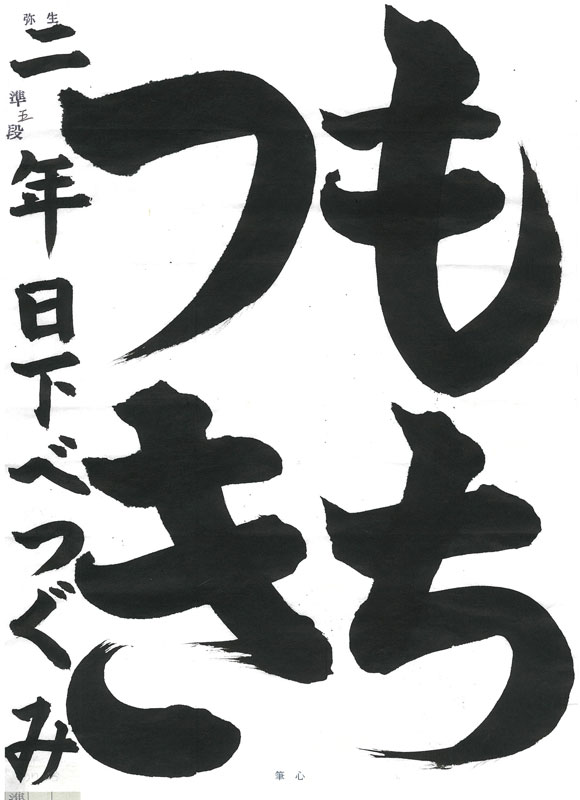 もち
つき
二年 日下べつぐみ
弥生
準五段
筆心